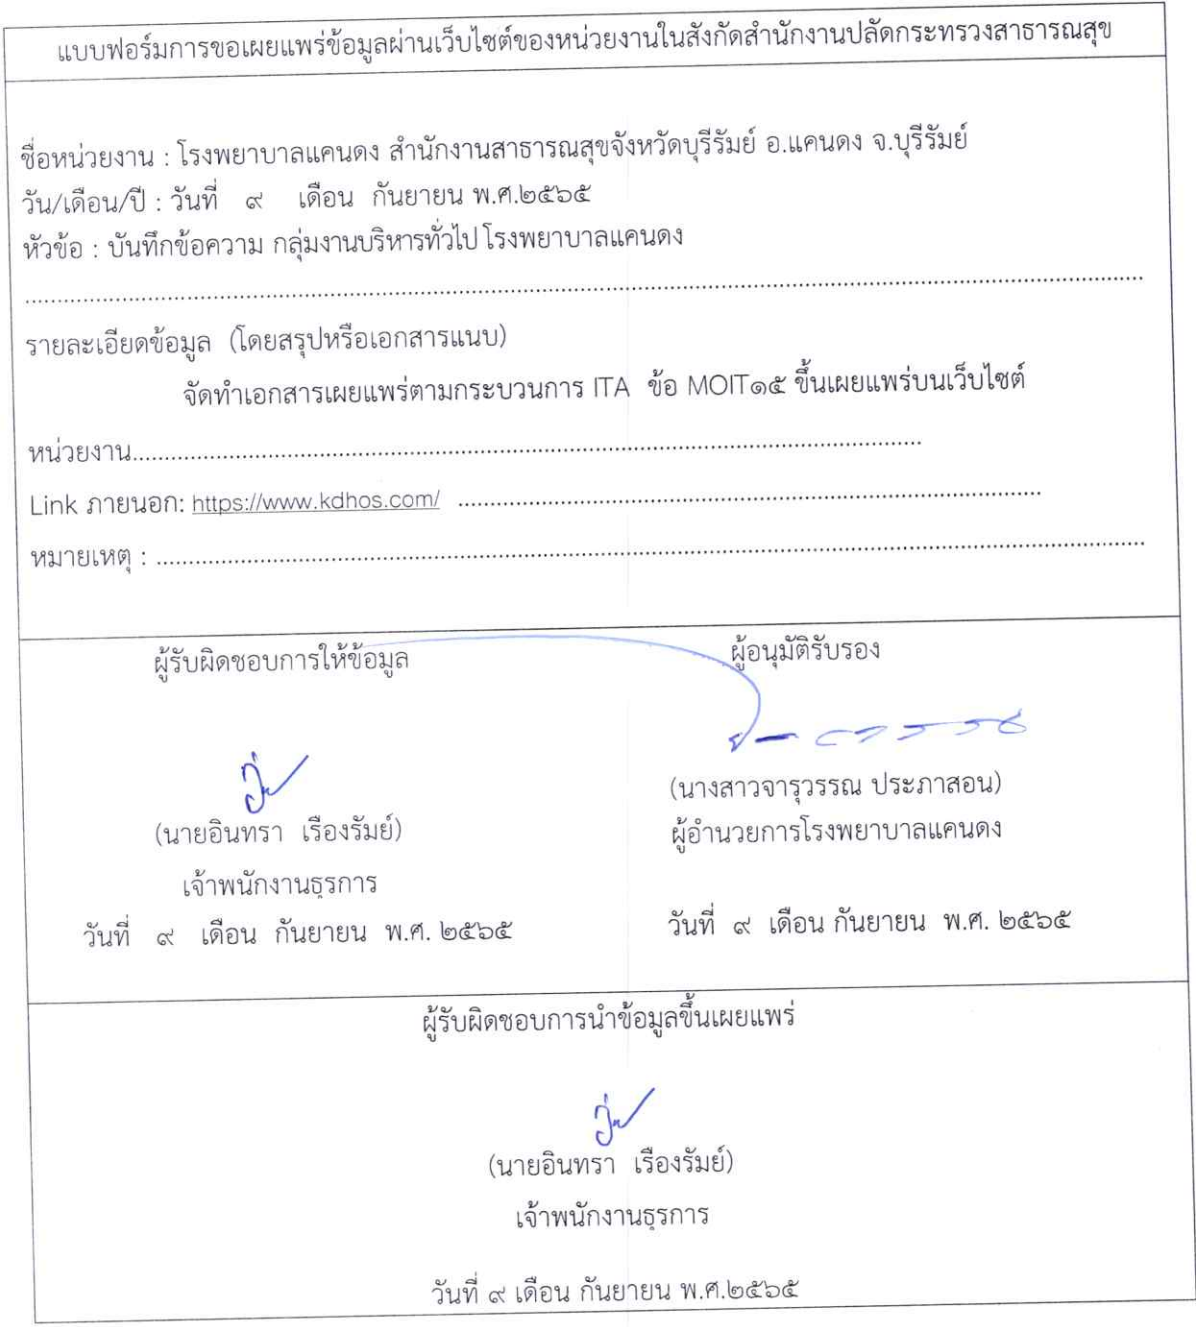 แบบฟอร์มการขอเผยแพร่ข้อมูลผ่านเว็บไซต์ของหน่วยงานในสังกัดสำนักงานปลัดกระทรวงสาธารณสุข
ชื่อหน่วยงาน : โรงพยาบาลแคนดง สำนักงานสาธารณสุขจังหวัดบุรีรัมย์ อ.แคนดง จ.บุรีรัมย์
วัน/เดือน/ปี : วันที่ ๙ เดือน กันยายน พ.ศ.๒๕๖๕
หัวข้อ : บันทึกข้อความ กลุ่มงานบริหารทั่วไป โรงพยาบาลแคนดง
รายละเอียดข้อมูล (โดยสรุปหรือเอกสารแนบ)
จัดทำเอกสารเผยแพร่ตามกระบวนการ ITA ข้อ MOIT๑๕ ขึ้นเผยแพร่บนเว็บไซต์
หน่วยงาน
Link ภายนอก: https://www.kdhos.com/
หมายเหตุ :
ผู้รับผิดชอบการให้ข้อมูล ผู้อนุมัติรับรอง
(นางสาวจารุวรรณ ประภาสอน)
(นายอินทรา เรืองรัมย์) ผู้อำนวยการโรงพยาบาลแคนดง
เจ้าพนักงานธุรการ
วันที่ ๙ เดือน กันยายน พ.ศ. ๒๕๖๕ วันที่ ๙ เดือน กันยายน พ.ศ. ๒๕๖๕
ผู้รับผิดชอบการนำข้อมูลขึ้นเผยแพร่
(นายอินทรา เรืองรัมย์)
เจ้าพนักงานธุรการ
วันที่ ๙ เดือน กันยายน พ.ศ.๒๕๖๕